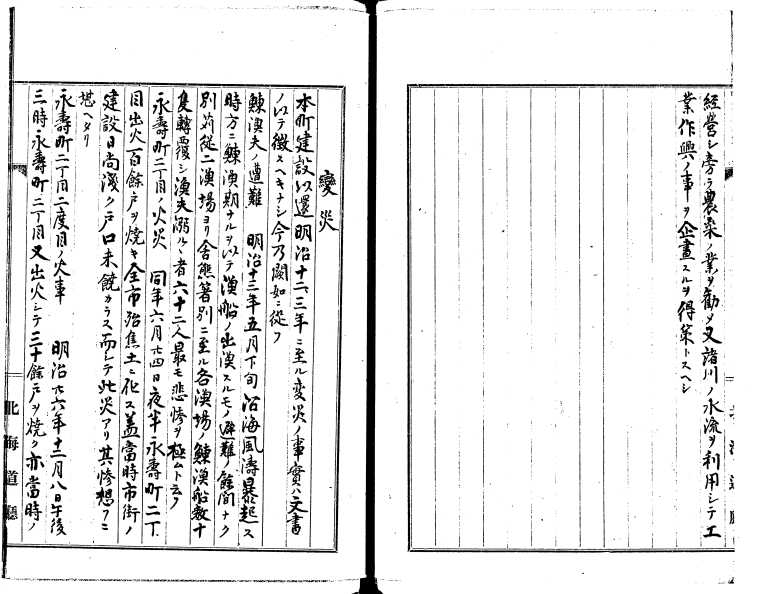 経営シ旁ラ農桑ノ業ヲ勧メ又諸川ノ水流ヲ利用シテ工
業作興ノ事ヲ企畫スルヲ得策トスヘシ
變災
本町建設以還明治十二、三年ニ至ル変災ノ事實ハ文書
ノ以テ徴スヘキナシ今乃闕如ニ従フ
鰊漁夫ノ遭難 明治十三年五月下旬沿海風濤暴起ス
時方ニ鰊漁期ナルヲ以テ漁船ノ出漁スルモノ避難ノ餘間ナク
別苅従二漁場ヨリ舎熊箸別ニ至ル各漁場ノ鰊漁船数十
隻轉覆シ漁夫溺ルヽ者六十二人最モ悲惨ヲ極ムト云フ
永壽町二丁目ノ火災 同年六月廿四日夜半永壽町二丁
目出火一百餘戸ヲ焼キ全市殆焦土ニ化ス蓋當時市街ノ
建設日尚淺ク戸口未饒カラス而シテ此災アリ其惨想フニ
堪ヘタリ
永壽町二丁目二度目ノ火事 明治廿六年十二月八日午後
三時永壽町二丁目又出火シテ三十餘戸ヲ焼ク亦當時ノ
北海道廳